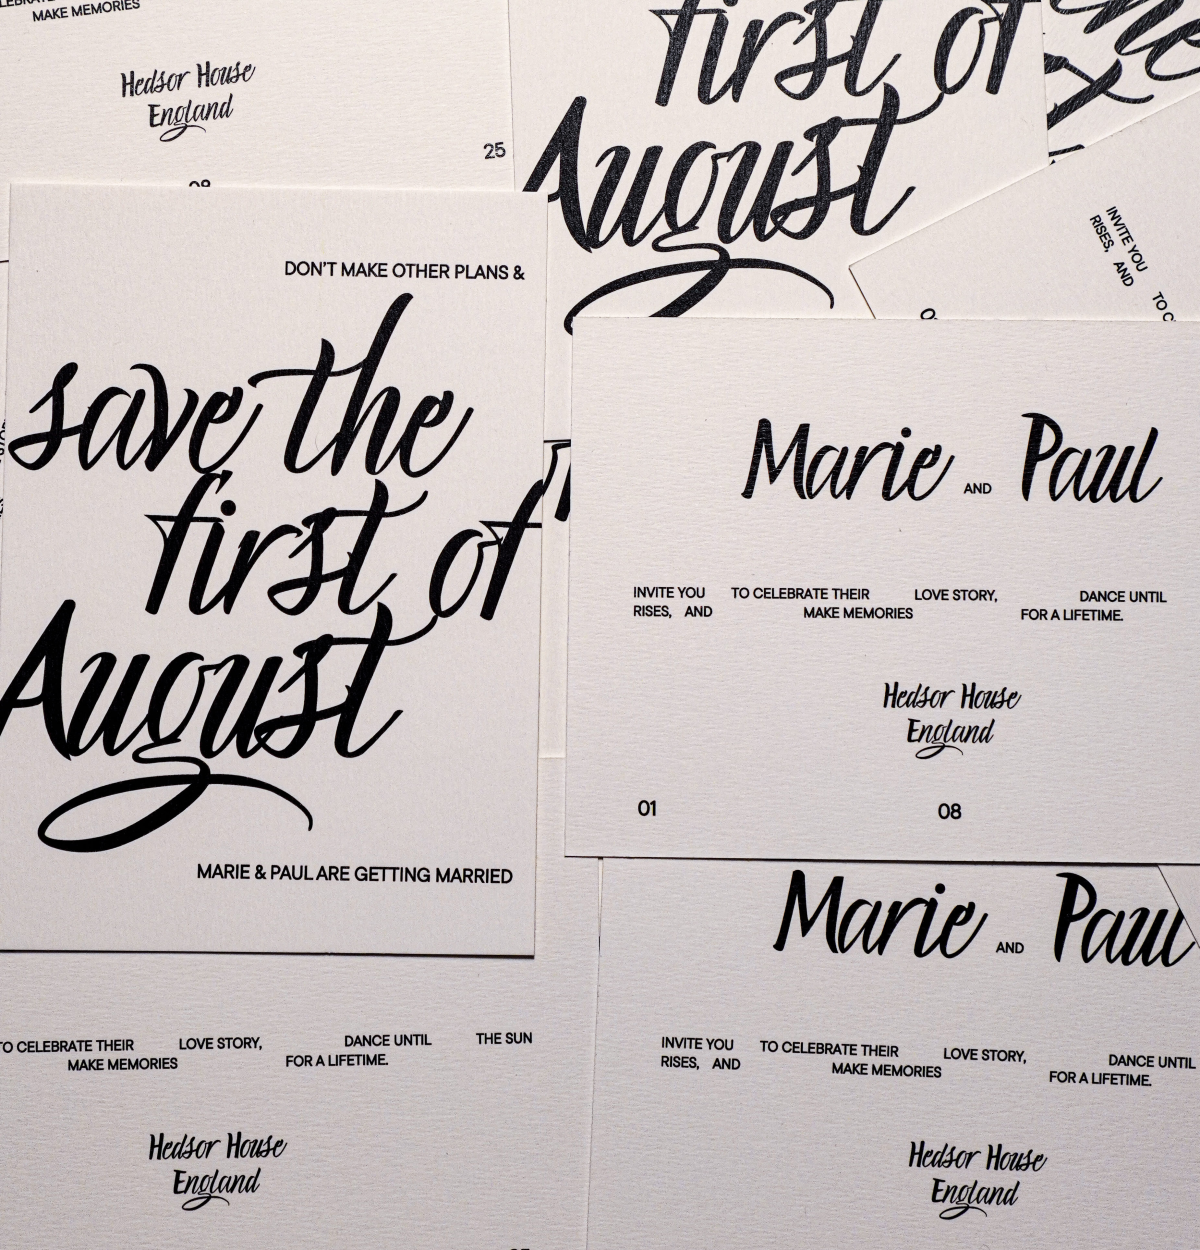 MAKE MEMORIES
Hedsor House
England
25
first of
August
INVITE YOU
RISES, AND
DON'T MAKE OTHER PLANS &
save the
first of
August
MARIE & PAUL ARE GETTING MARRIED
Marie AND Paul
INVITE YOU TO CELEBRATE THEIR LOVE STORY, DANCE UNTIL
RISES, AND MAKE MEMORIES FOR A LIFETIME.
Hedsor House
England
01 08
TO CELEBRATE THEIR LOVE STORY, DANCE UNTIL THE SUN
MAKE MEMORIES FOR A LIFETIME.
Hedsor House
England
Marie AND Paul
INVITE YOU TO CELEBRATE THEIR LOVE STORY, DANCE UNTIL
RISES, AND MAKE MEMORIES FOR A LIFETIME.
Hedsor House
England